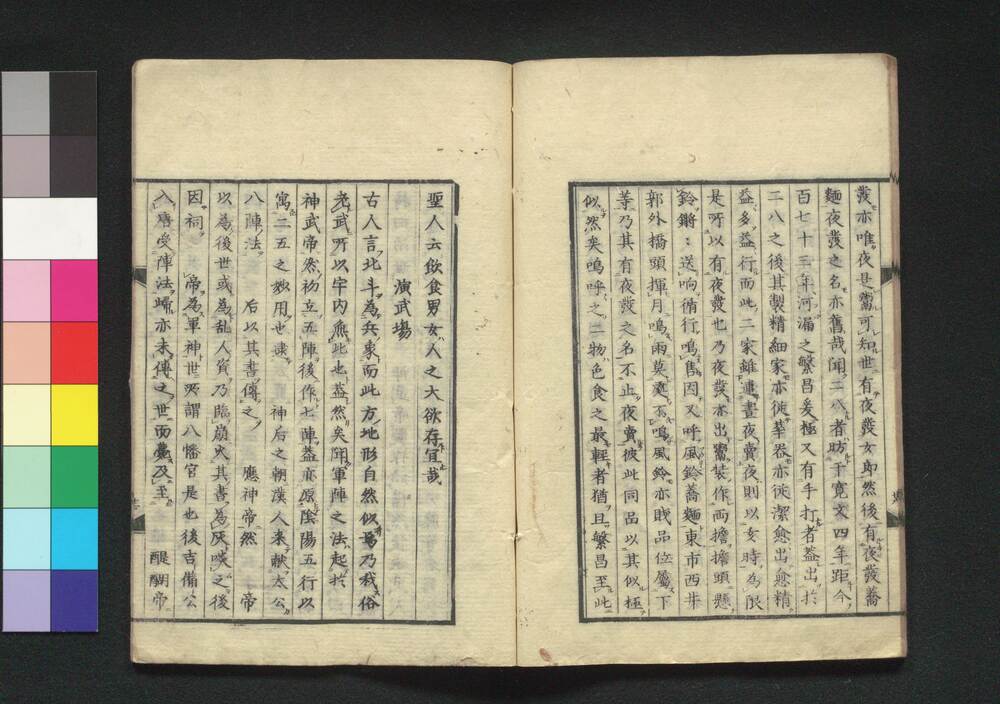 發亦唯夜是鬻可知世有夜發女即然後有夜發蕎
麵夜發之名亦舊哉聞二八者昉于寛文四年距今
百七十三年河漏之繁昌爰極又有手打者益出於
二八之後其製精細家亦徙華器亦徙潔愈出愈精
益多益行而此二家雖連晝夜賣夜則以女時為限
是所以有夜發也乃夜發亦出鬻裝作両擔擔頭懸
鈴鏘〻送响循行鳴售因又呼風鈴蕎麵東市西井
郭外橋頭揮月鳴雨莫處不鳴風鈴亦賎品位屬下
等乃其有夜發之名不止夜賣彼此同品以其似極
似然矣嗚呼之二物色食之最軽者猶且繁昌至此
聖人云飲食男女人之大欲存宜哉
演武場
古人言北斗為兵象而此方地形自然似焉乃我俗
老武所以宇内應此也蓋然矣陣軍陣之法起於
神武帝然初立五陣後作七陣蓋亦原陰陽五行以
寓二五之妙用也逮 神后之朝漢人来献太公
八陣法 后以其書傳之 應神帝然 帝
以為後世或為乱人資乃臨崩火其書為灰啖之後
因祠 帝為軍神世所謂八幡宮是也後吉備公
入唐受陣法歸亦未傳之世而曼及至 醍醐帝